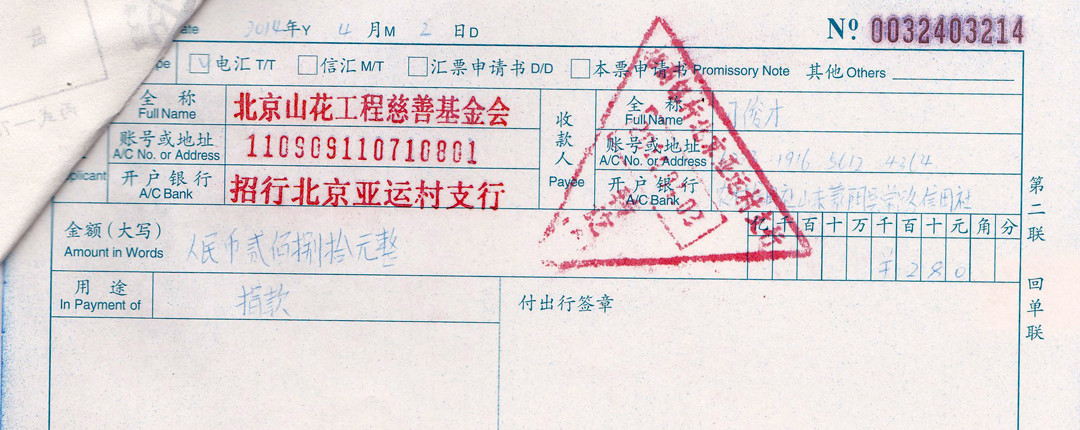 ate 2014年Y 4月M 2日D Nº 0032403214
pe 电汇 T/T 信汇 M/T 汇票申请书 D/D 本票申请书 Promissory Note 其他 Others
全称 Full Name 北京山花工程慈善基金会
账号或地址 A/C No. or Address 110909110710801
plicant 开户银行 A/C Bank 招行北京亚运村支行
收款人 Payee
全称 Full Name 俊才
账号或地址 A/C No. or Address 1916 5612 4364
开户银行 A/C Bank 山东蒙阴县常路信用社
金额(大写) Amount in Words 人民币贰佰捌拾元整
亿千百十万千百十元角分
¥280
用途 In Payment of 捐款
付出行签章
第二联 回单联
北京亚运村支行